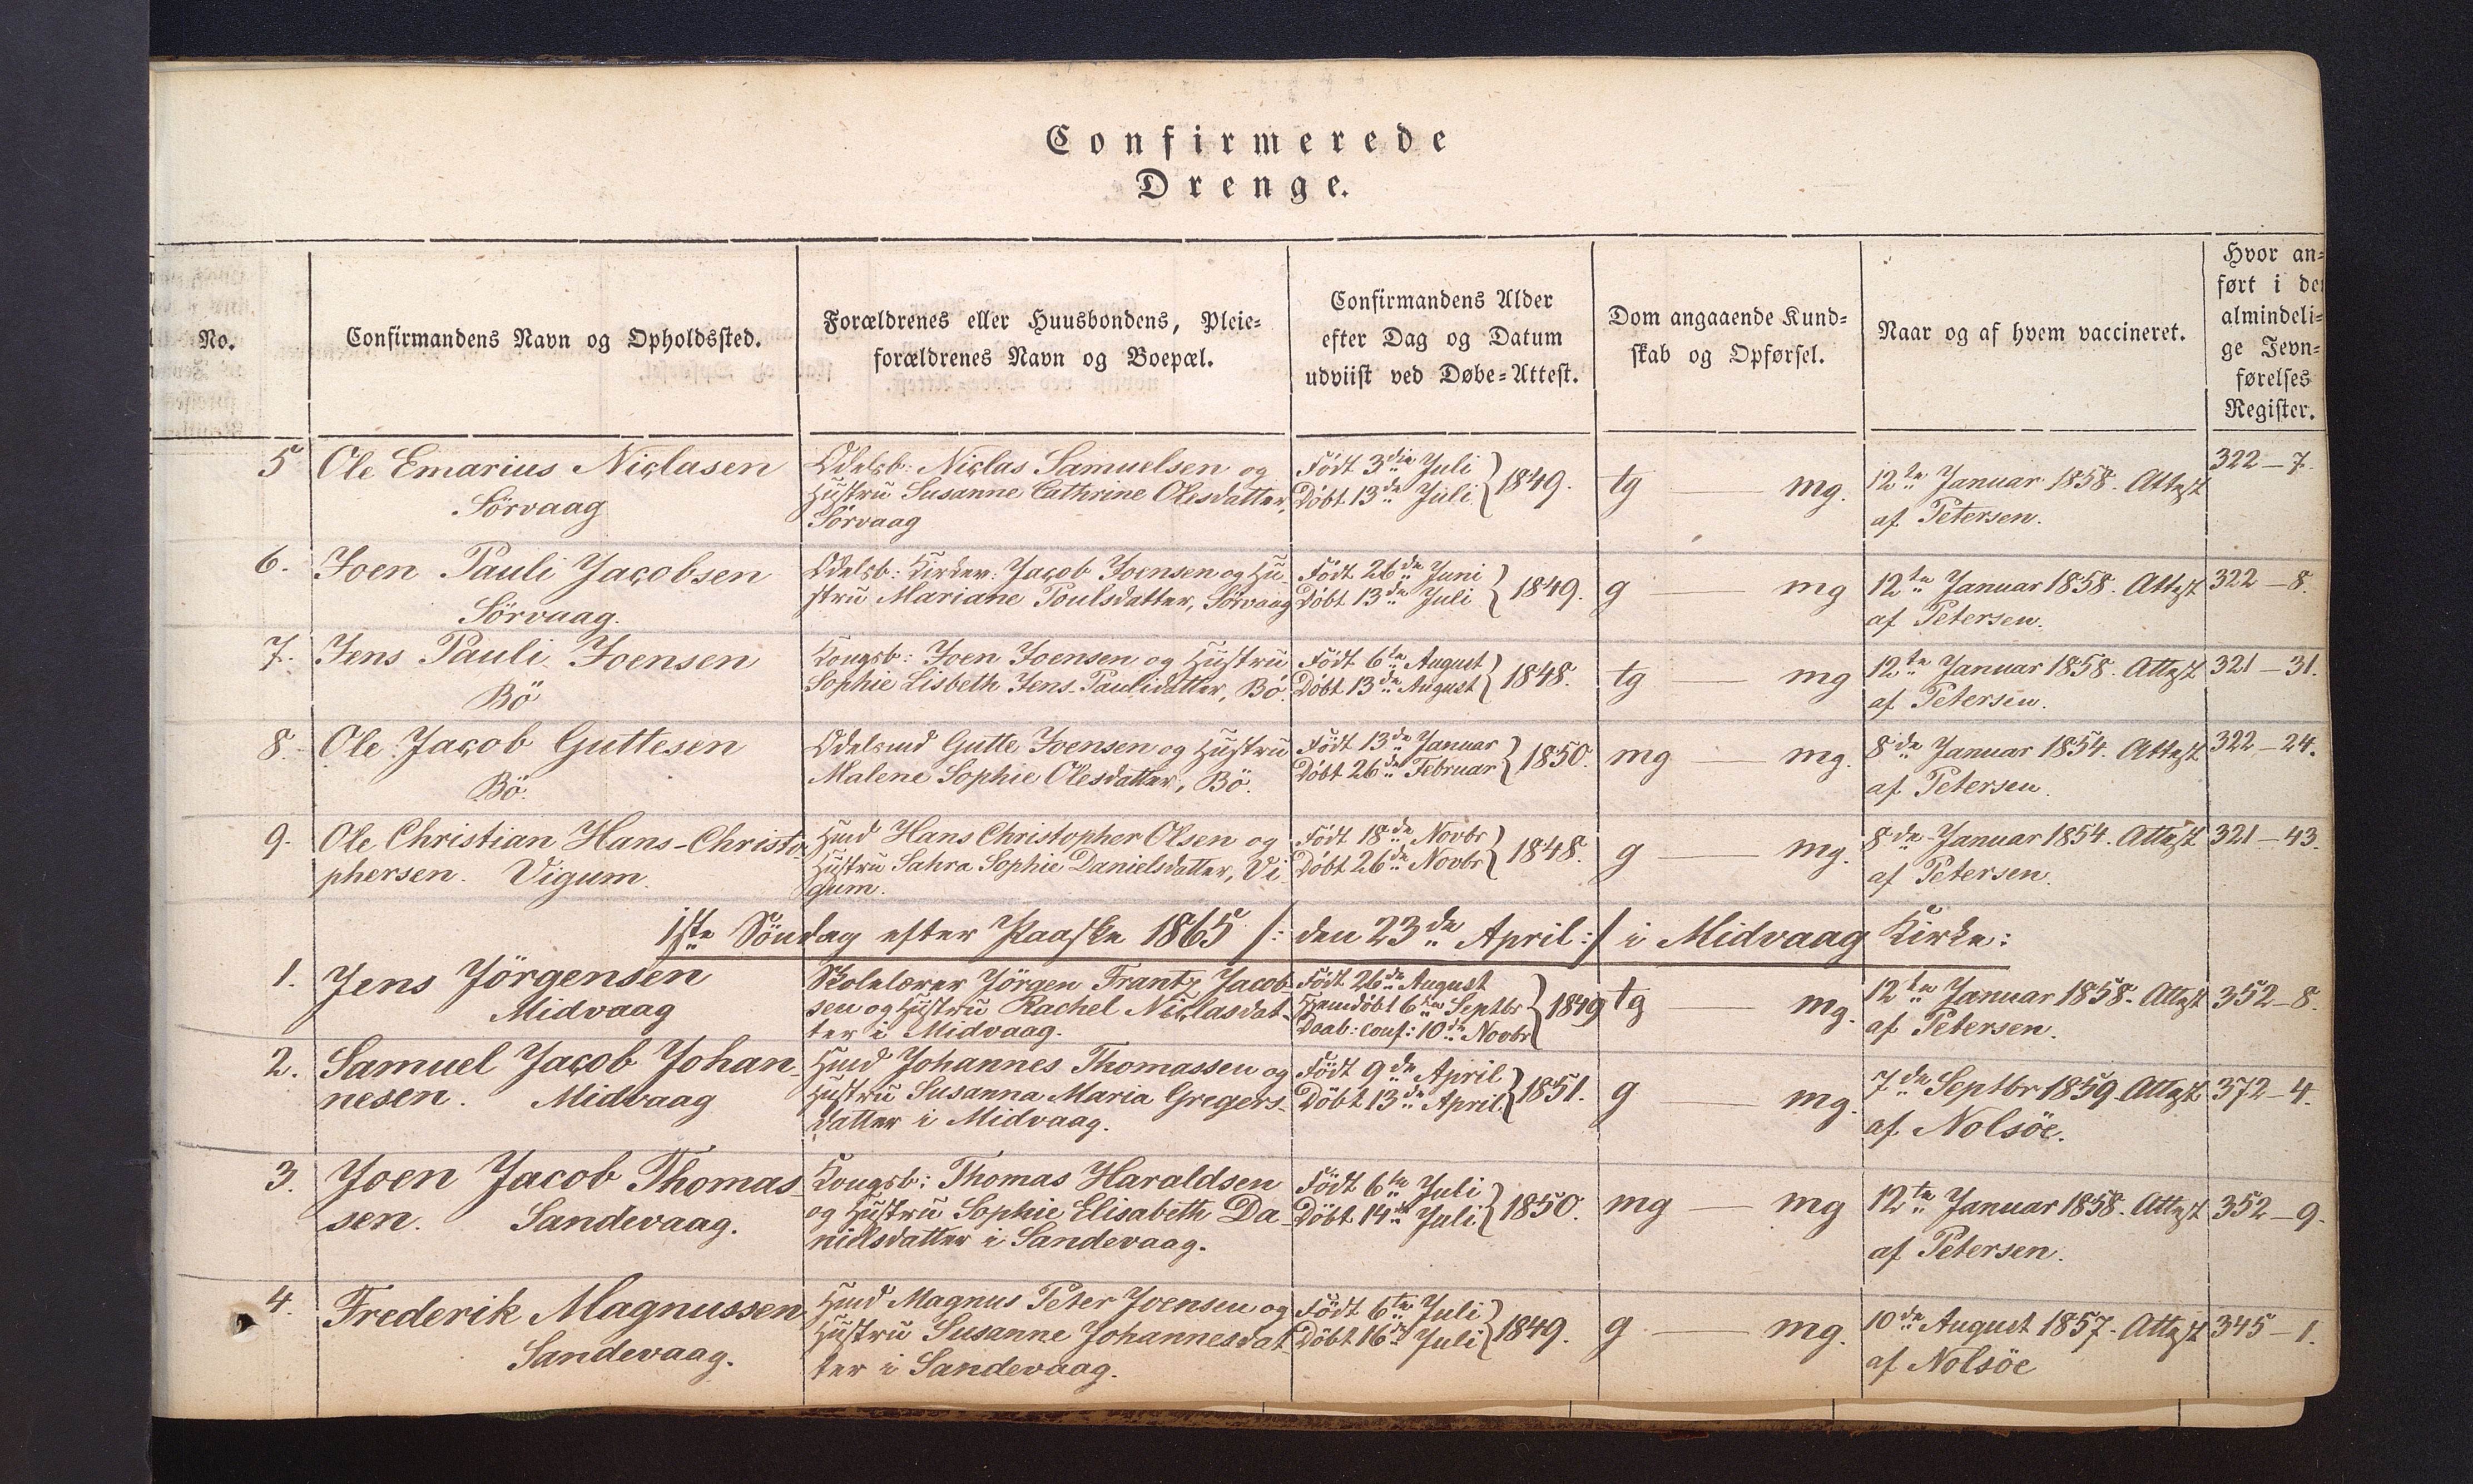 Confirmerede
Drenge.
No.
Confirmandens Navn og Opholdssted.
Forældrenes eller Huusbondens, Pleie-
forældrenes Navn og Boepæl.
Confirmandens Alder
efter Dag og Datum
udviist ved Døbe-Attest.
Dom angaaende Kund-
skab og Opførsel.
Naar og af hvem vaccineret.
Hvor an-
ført i de
almindeli-
ge Jevn-
førelses
Register.
5 Ole Emarius Niclasen
Sörvaag
Odelsb: Niclas Samuelsen og
Hustru Susanne Cathrine Olesdatter,
Sörvaag
Födt 3die Juli
Döbt 13de Juli } 1849.
tg — mg.
12te Januar 1858. Attest
af Petersen.
322 – 7.
6. Joen Pauli Jacobsen
Sörvaag.
Odelsb: Kirkev: Jacob Joensen og Hu-
stru Mariane Poulsdatter, Sörvaag
Födt 26de Juni
Döbt 13de Juli } 1849.
g — mg
12te Januar 1858. Attest
af Petersen.
322 – 8.
7. Jens Pauli Joensen
Bö
Kongsb: Joen Joensen og Hustru
Sophie Lisbeth Jens-Paulidatter, Bö.
Födt 6te August
Döbt 13de August } 1848.
tg — mg
12te Januar 1858. Attest
af Petersen.
321 – 31.
8. Ole Jacob Guttesen
Bö.
Odelsmd Gutte Joensen og Hustru
Malene Sophie Olesdatter, Bö.
Födt 13de Januar
Döbt 26de Februar } 1850.
mg — mg.
8de Januar 1854. Attest
af Petersen.
322 – 24.
9. Ole Christian Hans-Christo-
phersen. Vigum.
Hmd Hans Christopher Olsen og
Hustru Sahra Sophie Danielsdatter, Vi-
gum.
Födt 18de Novbr
Döbt 26de Novbr } 1848.
g — mg.
8de Januar 1854. Attest
af Petersen.
321 – 43.
1ste Söndag efter Paaske 1865 /: den 23de April :/ i Midvaag Kirke:
1. Jens Jörgensen
Midvaag
Skolelærer Jörgen Frantz Jacob-
sen og Hustru Rachel Niclasdat-
ter i Midvaag.
Födt 26de August
Hjemdöbt 6te Septbr
Daab: conf: 10de Novbr } 1849
tg — mg.
12te Januar 1858. Attest
af Petersen.
352 – 8.
2. Samuel Jacob Johan-
nesen. Midvaag
Hmd Johannes Thomassen og
Hustru Susanna Maria Gregers-
datter i Midvaag.
Födt 9de April
Döbt 13de April } 1851.
g — mg.
7de Septbr 1859. Attest
af Nolsöe.
372 – 4.
3. Joen Jacob Thomas-
sen. Sandevaag.
Kongsb: Thomas Haraldsen
og Hustru Sophie Elisabeth Da-
nielsdatter i Sandevaag.
Födt 6te Juli
Döbt 14de Juli } 1850.
mg — mg
12te Januar 1858. Attest
af Petersen.
352 – 9.
4. Frederik Magnussen
Sandevaag.
Hmd Magnus Peter Joensen og
Hustru Susanne Johannesdat-
ter i Sandevaag.
Födt 6te Juli
Döbt 16de Juli } 1849.
g — mg.
10de August 1857. Attest
af Nolsöe
345 – 1.